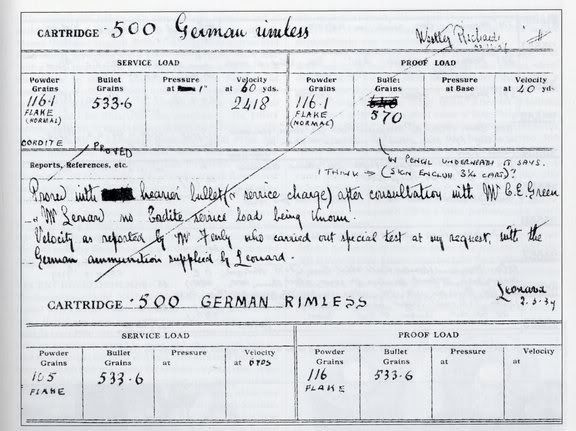 CARTRIDGE .500 German rimless
Westley Richards
SERVICE LOAD PROOF LOAD
Powder Grains Bullet Grains Pressure at 1" Velocity at 60 yds. Powder Grains Bullet Grains Pressure at Base Velocity at 40 yds.
116.1 533.6 2418 116.1 570
FLAKE FLAKE
(NORMAL) (NORMAL)
CORDITE
PROVED
IN PENCIL UNDERNEATH IT SAYS.
I THINK → (SIGN ENGLISH 3¼ CART)?
Reports, References, etc.
Proved with heavier bullet (& service charge) after consultation with Mr C.E. Green
& Mr Leonard no Cordite service load being known.
Velocity as reported by Mr Fenly who carried out special test at my request, with the
German ammunition supplied by Leonard.
Leonard
CARTRIDGE .500 GERMAN RIMLESS
2.3.34
SERVICE LOAD PROOF LOAD
Powder Grains Bullet Grains Pressure at Velocity at YDS Powder Grains Bullet Grains Pressure at Velocity at
105 533.6 116 533.6
FLAKE FLAKE